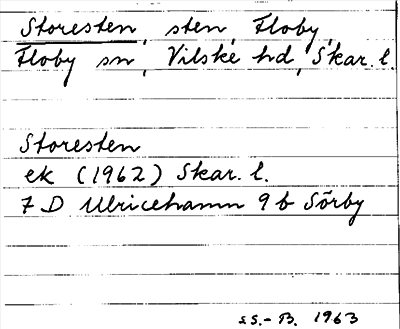 Storesten, sten, Floby,
Floby sn, Vilske hd, Skar. l.
Storesten
ek (1962) Skar. l.
7 D Ulricehamn 9 b Sörby
S.S.-B. 1963